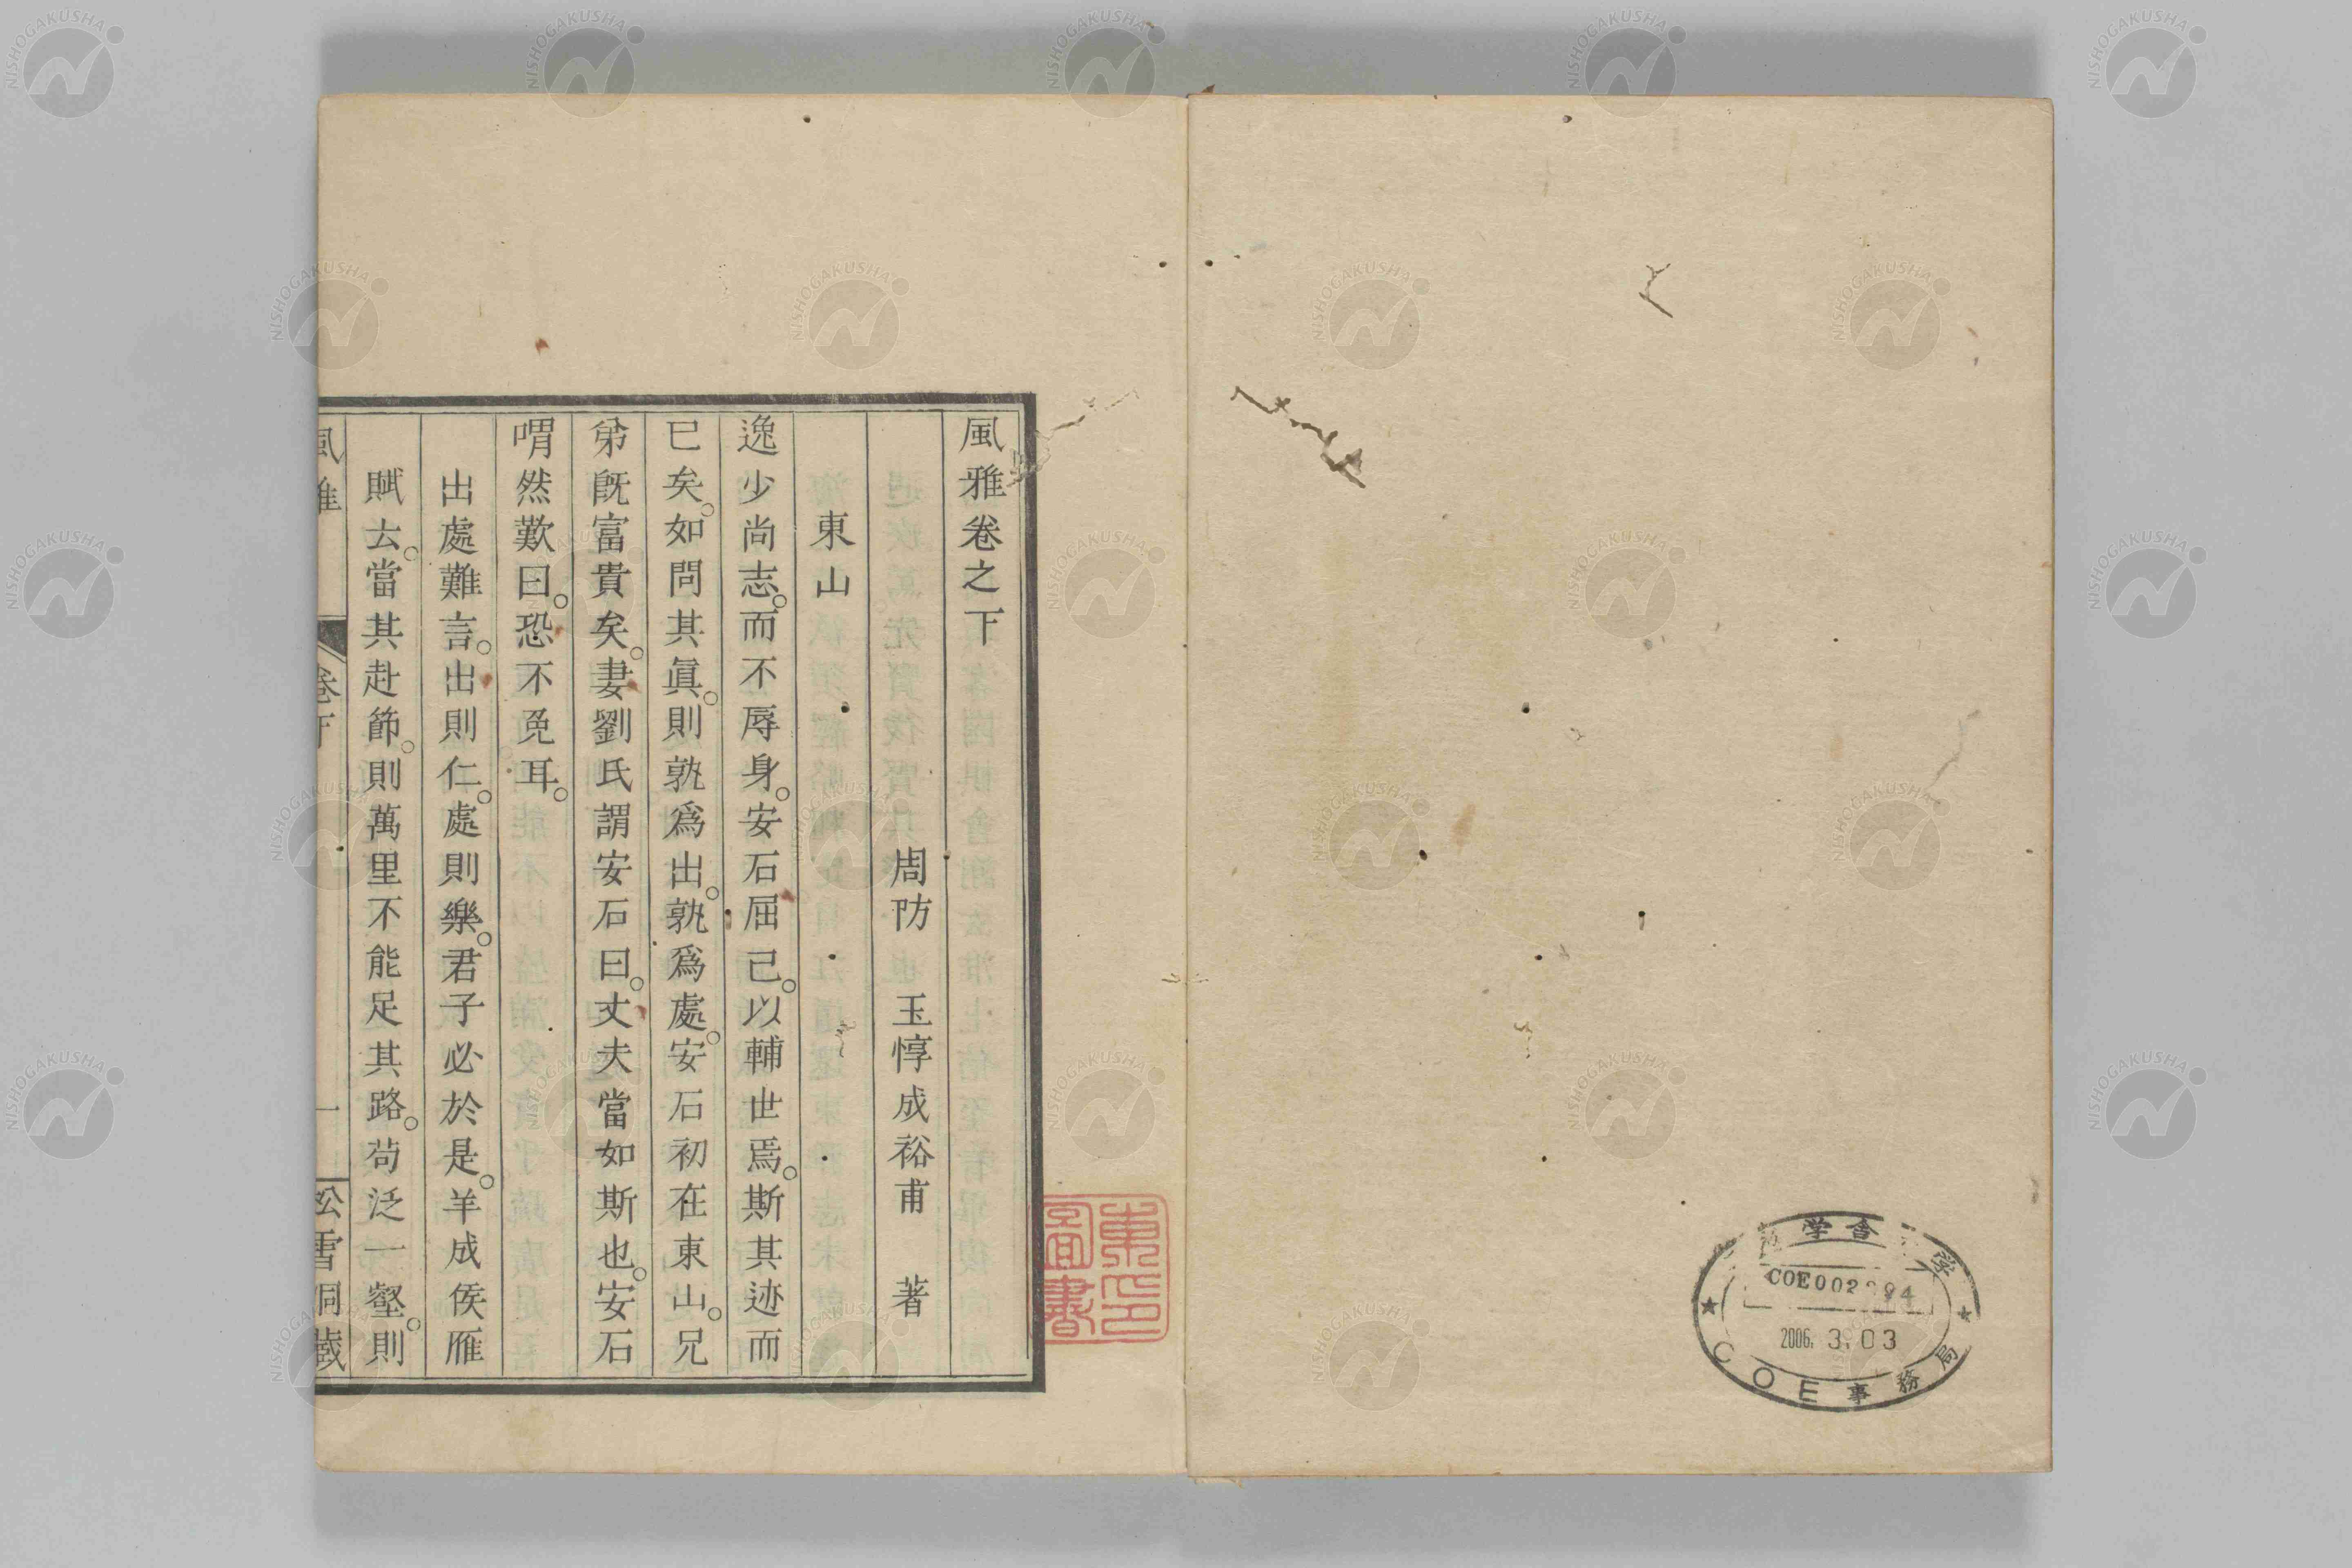 風雅卷之下
周防　玉惇成裕甫　著
東山
逸少尚志。而不辱身。安石屈己。以輔世焉。斯其迹而
已矣。如問其眞。則孰爲出。孰爲處。安石初在東山。兄
弟旣富貴矣。妻劉氏謂安石曰。丈夫當如斯也。安石
喟然歎曰。恐不免耳。
出處難言。出則仁。處則樂。君子必於是。羊成侯雁
賦去。當其赴節。則萬里不能足其路。苟泛一壑。則
風雅　卷下　一　松雪洞藏
学舎
学
COE002
2006. 3. 03
COE事務局
NISHOGAKUSHA